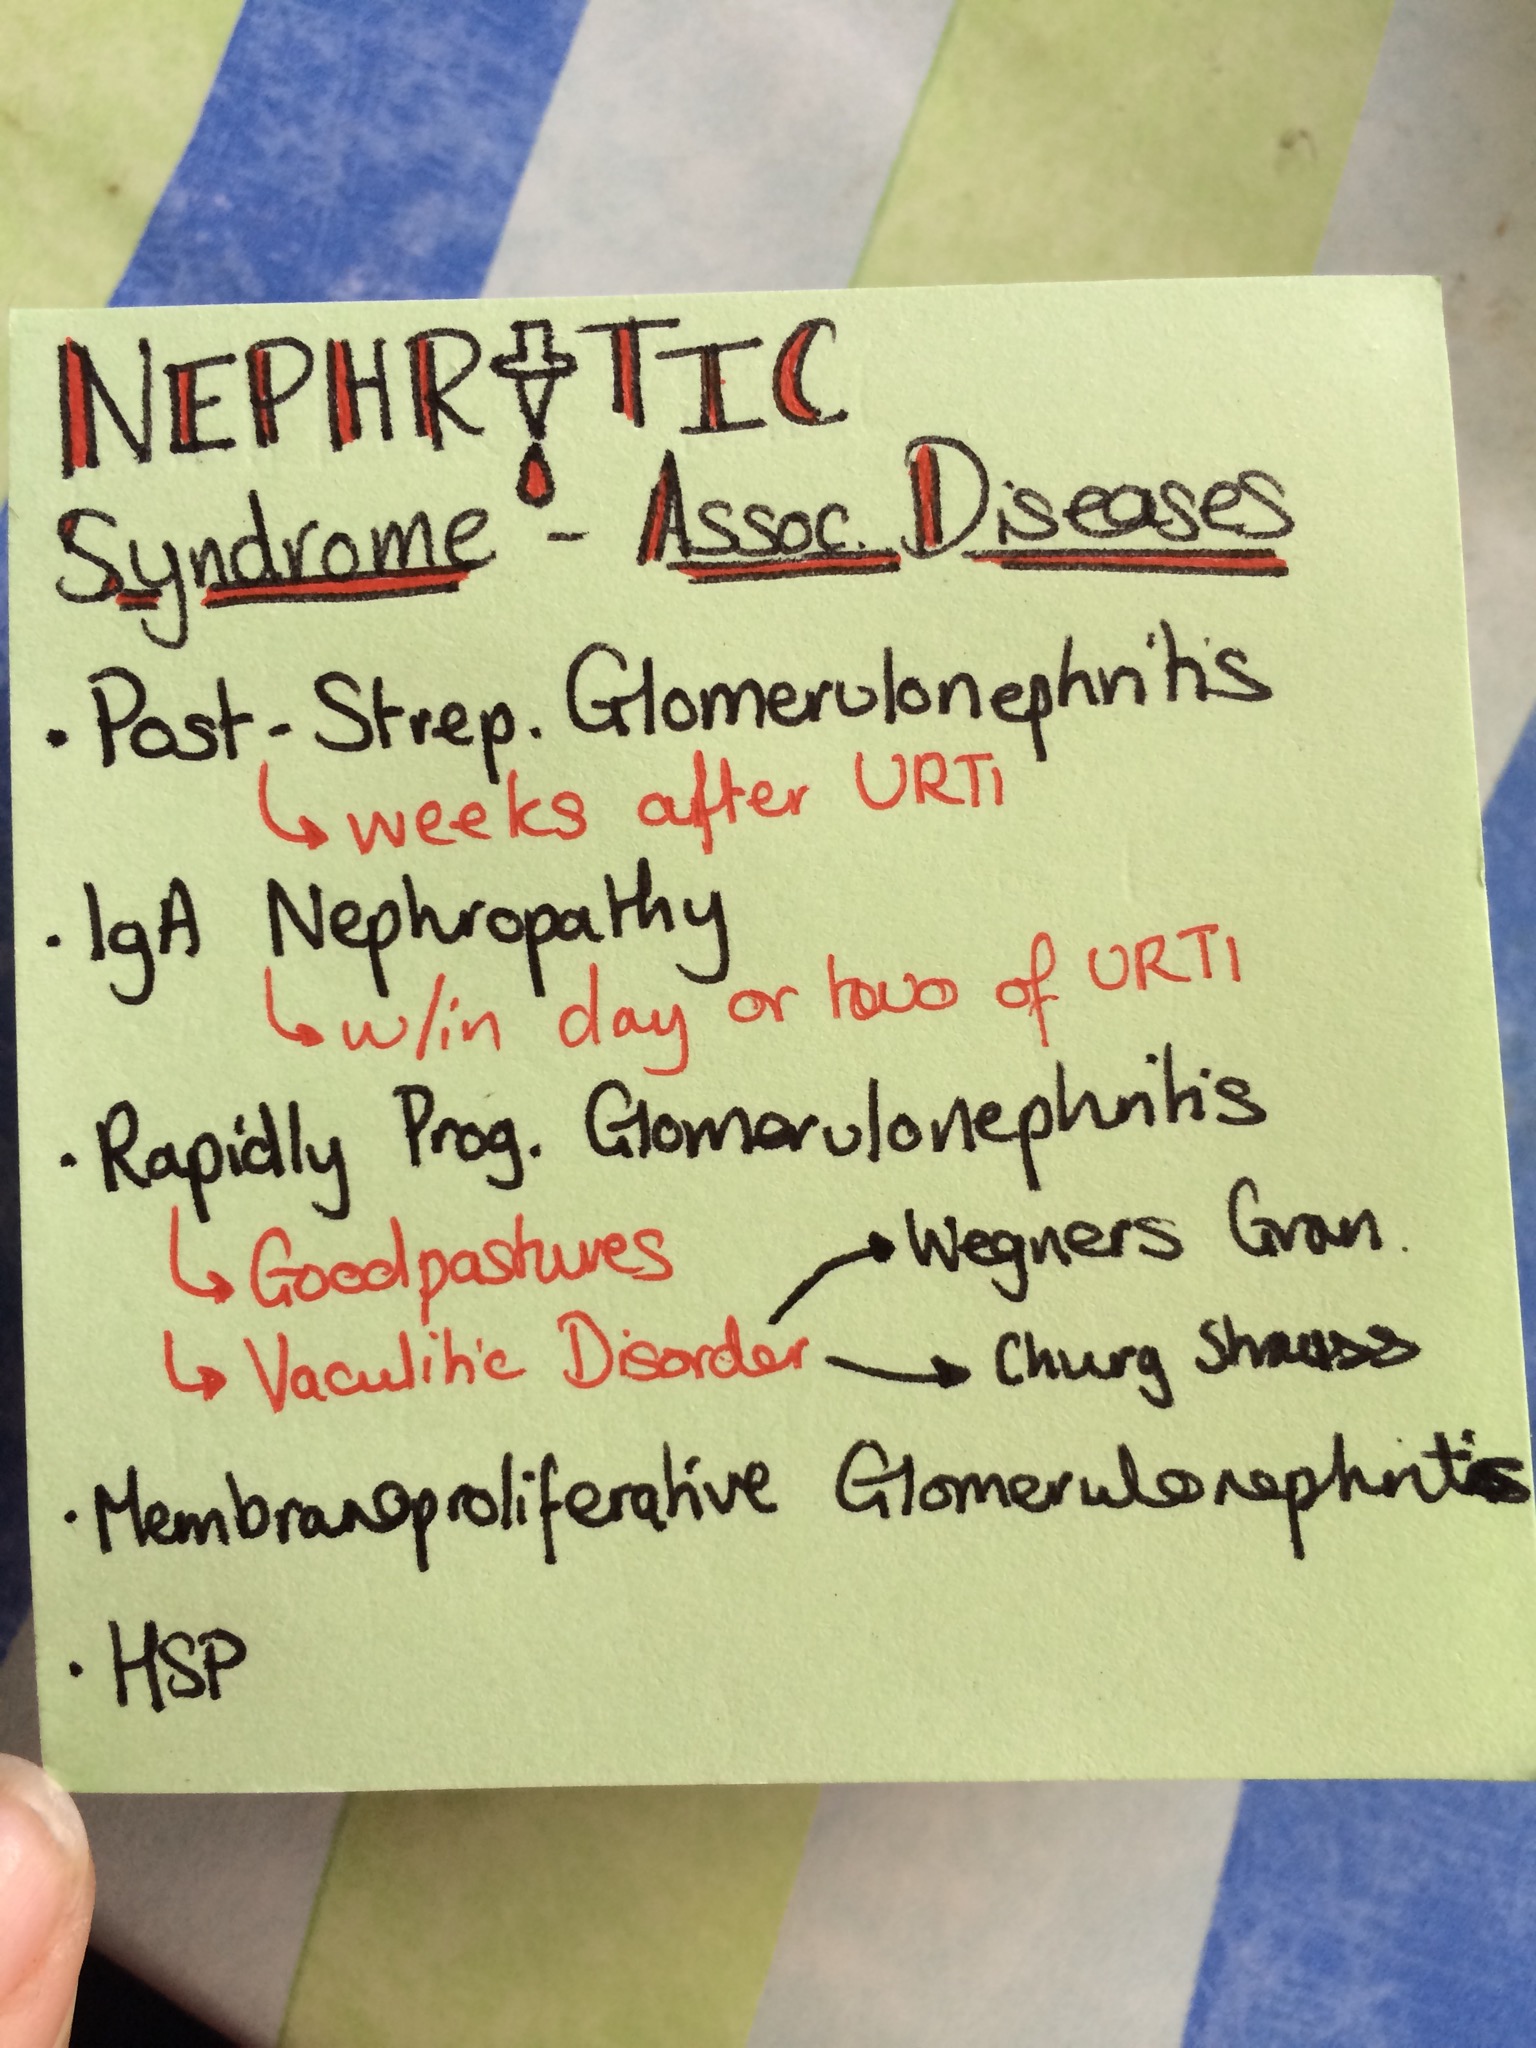 NEPHRITIC
Syndrome - Assoc. Diseases
• Post-Strep. Glomerulonephritis
↳ weeks after URTI
• IgA Nephropathy
↳ w/in day or two of URTI
• Rapidly Prog. Glomerulonephritis
↳ Goodpastures → Wegners Gran.
↳ Vaculitic Disorder → Churg Strauss
• Membranoproliferative Glomerulonephritis
• HSP